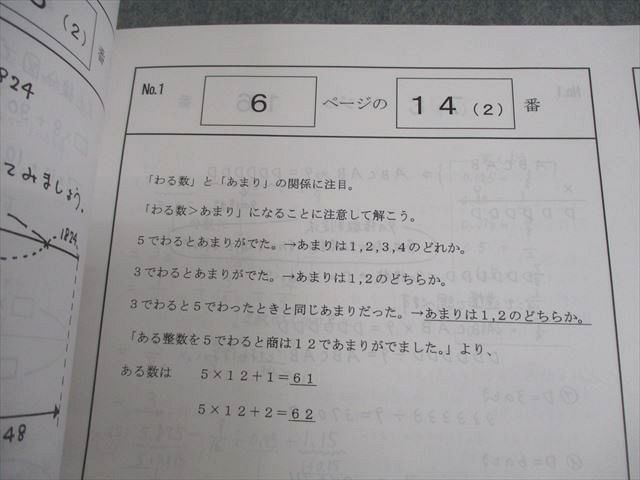 (2)
番
1824
てみましょう。
1824
48
No.1
6 ページの 14 (2) 番
「わる数」と「あまり」の関係に注目。
「わる数>あまり」になることに注意して解こう。
5でわるとあまりがでた。→あまりは1,2,3,4のどれか。
3でわるとあまりがでた。→あまりは1,2のどちらか。
3でわると5でわったときと同じあまりだった。→あまりは1,2のどちらか。
「ある整数を5でわると商は12であまりがでました。」より、
ある数は　5×12+1=61
5×12+2=62